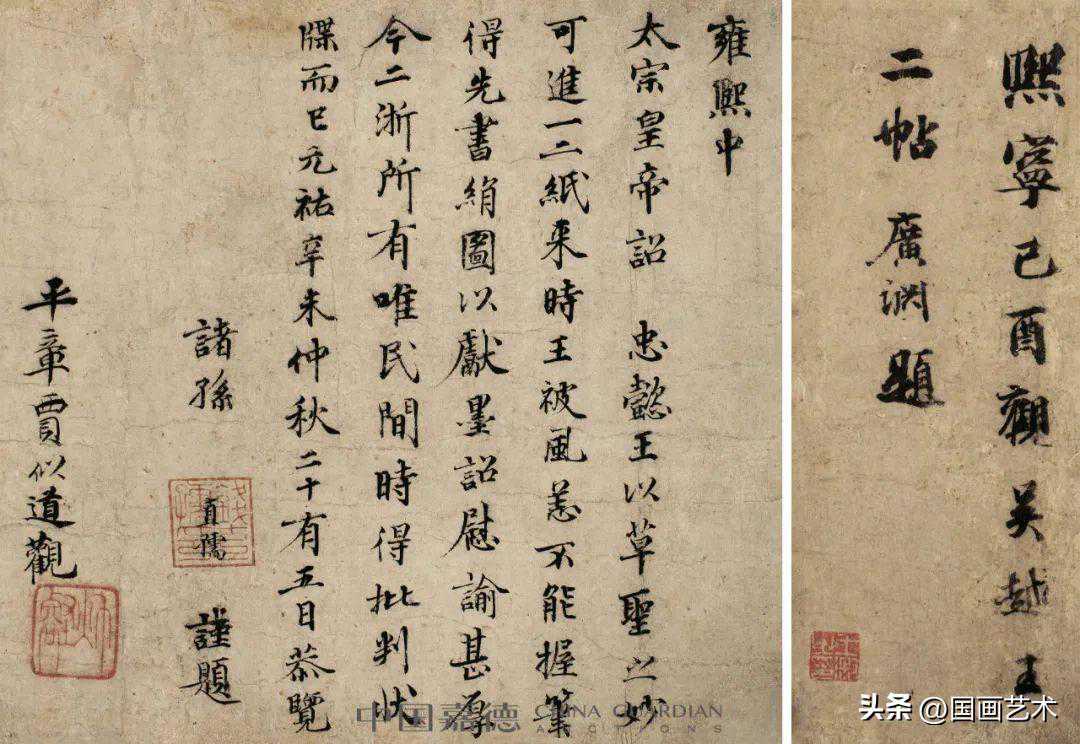 熙寧己酉觀吳越王
二帖 廣淵題
雍熙中
太宗皇帝詔 忠懿王以草聖之妙
可進一二紙來時王被風恙不能握筆
得先書絹圖以獻墨詔慰諭甚厚
今二浙所有唯民間時得批判狀
牒而已元祐辛未仲秋二十有五日恭覽
諸孫 直孺 謹題
平章賈似道觀
中国嘉德 CHINA GUARDIAN AUCTIONS
头条 @国画艺术